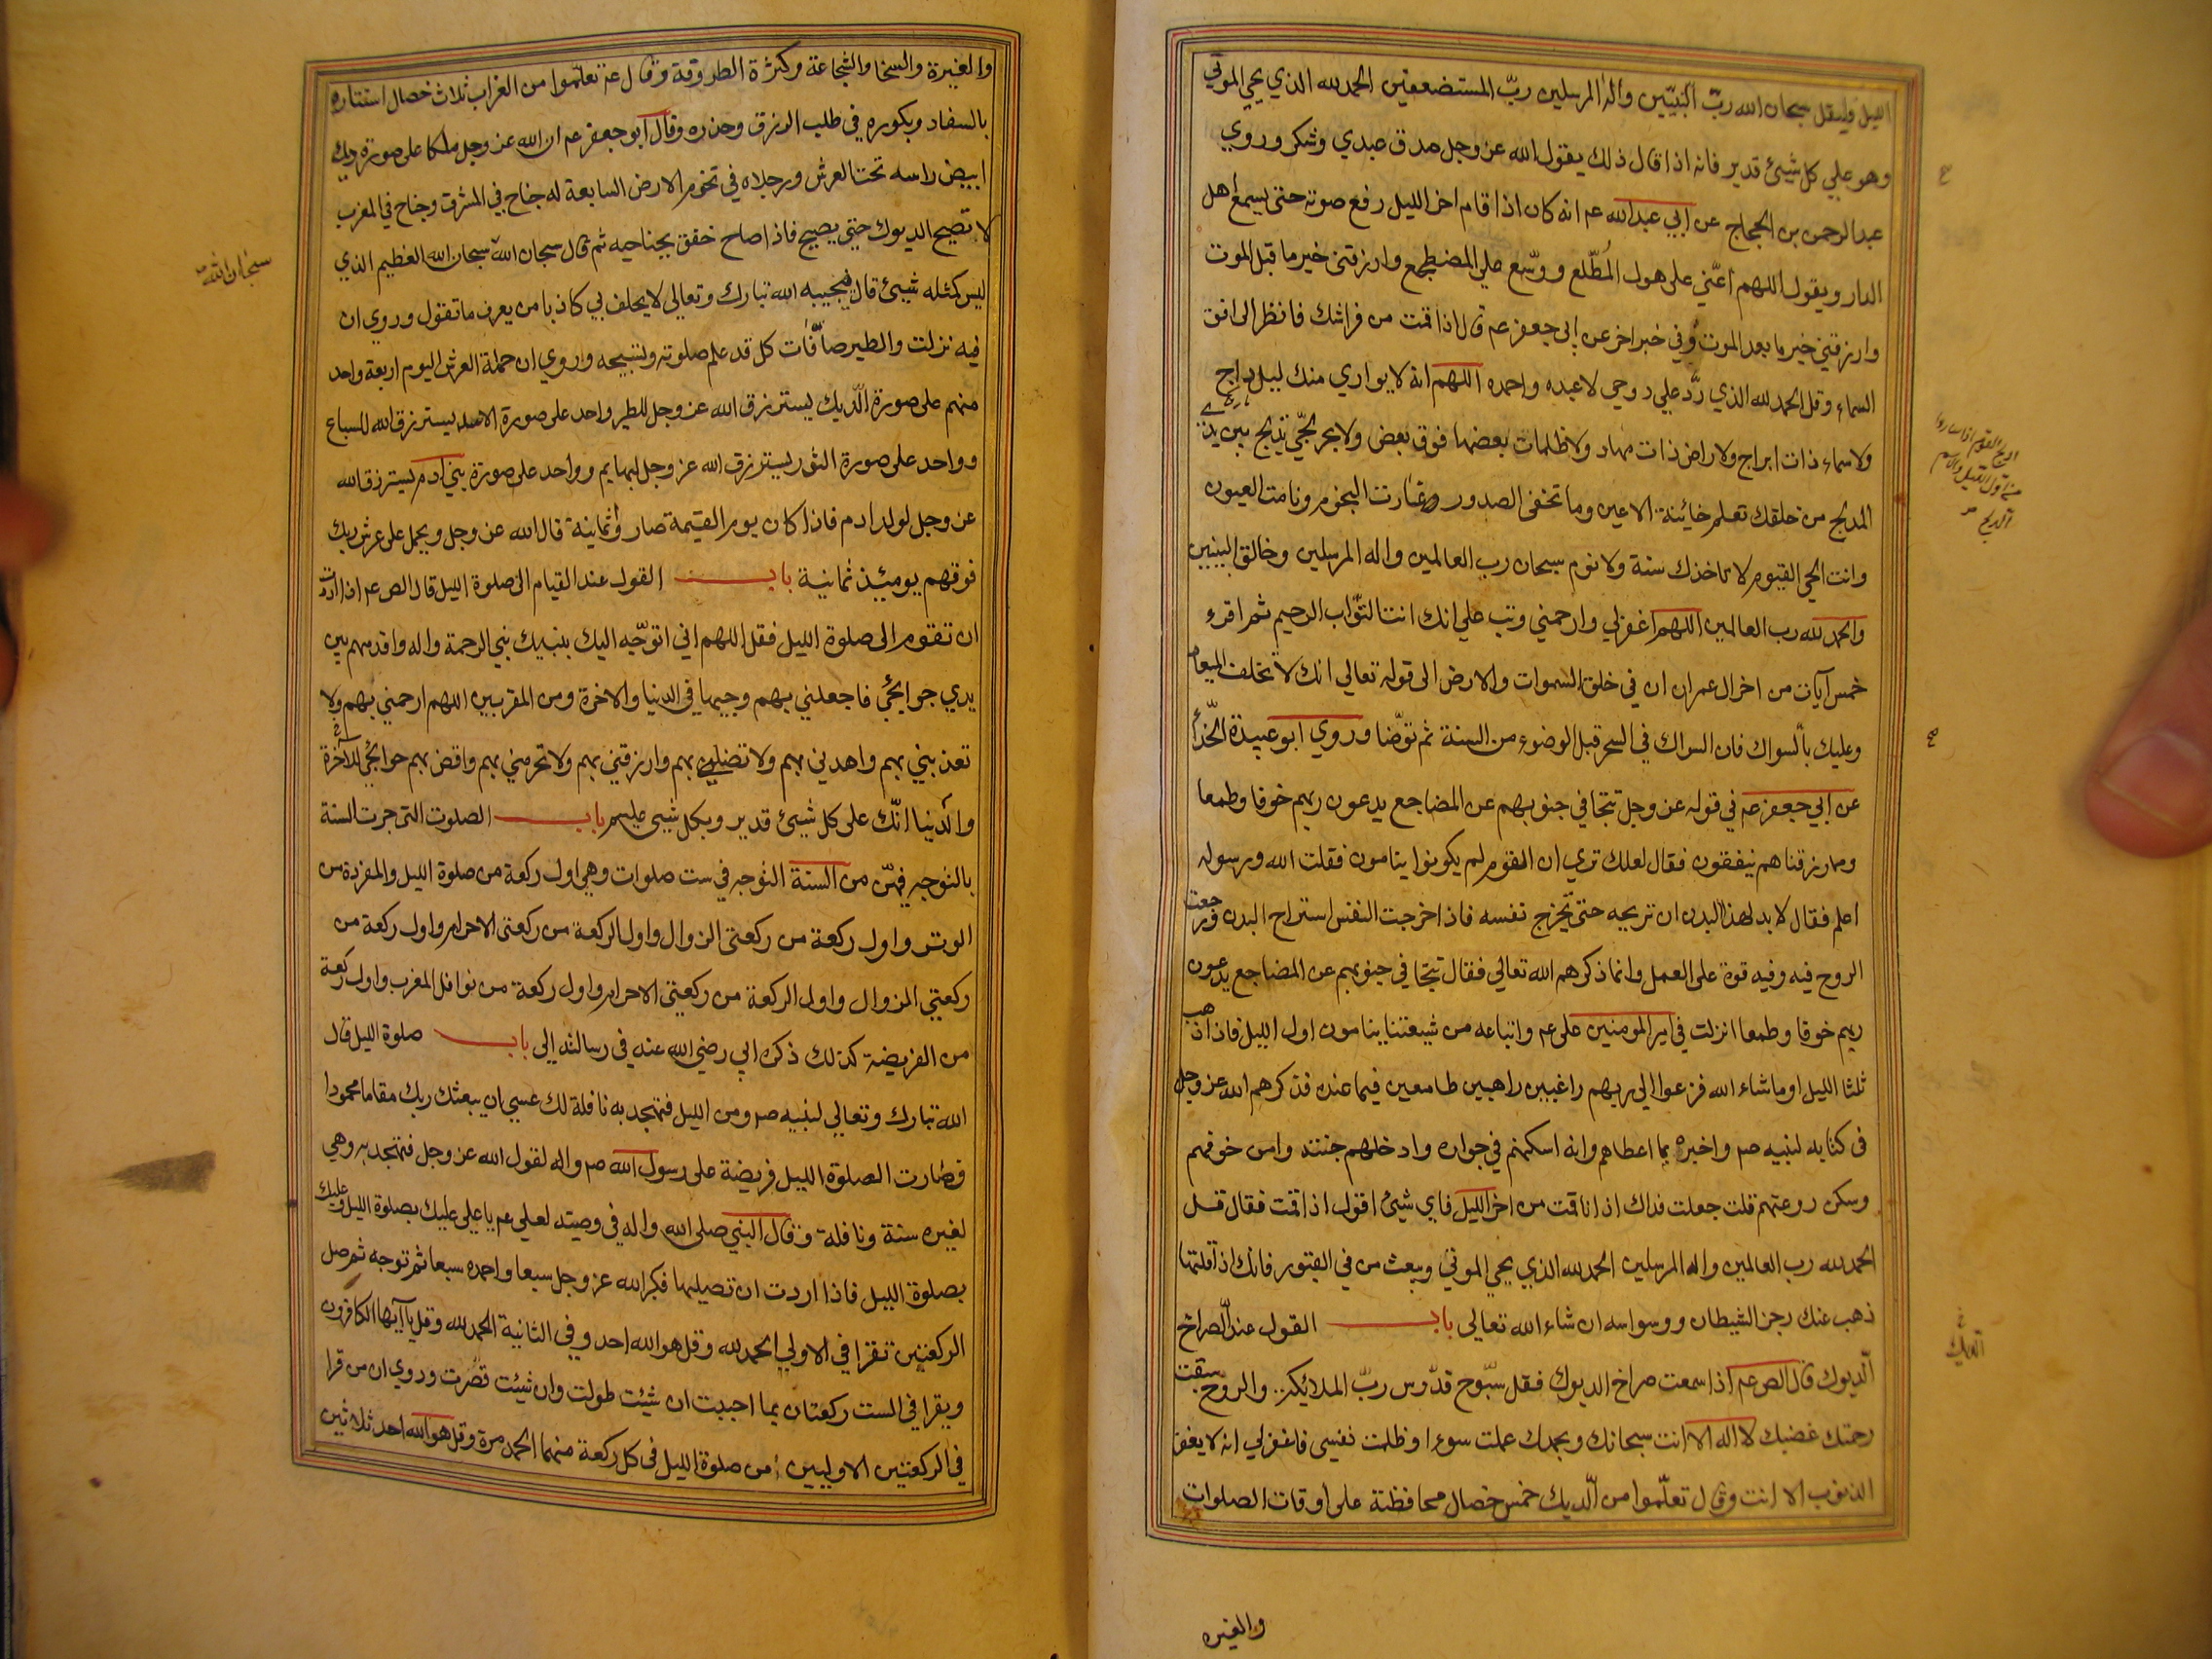 الليل فليقل سبحان الله ربّ النبيّين واله المرسلين ربّ المستضعفين الحمد لله الذي يحيي الموتي
وهو علي كل شيئ قدير فانه اذا قال ذلك يقول الله عز وجل صدق عبدي وشكر وروي
عبد الرحمن بن الحجاج عن ابي عبد الله عم انه كان اذا قام اخر الليل رفع صوته حتي يسمع اهل
الدار ويقول اللهم اعنّي علي هول المُطّلع ووسّع علي المضطجع وارزقني خير ما قبل الموت
وارزقني خير ما بعد الموت وفي خبر اخر عن ابي جعفر عم قال اذا قمت من فراشك فانظر الي افق
السماء وقل الحمد لله الذي ردّ علي روحي لاعبده واحمده اللهم انه لا يواري منك ليل داج
ولا سماء ذات ابراج ولا ارض ذات مهاد ولا ظلمات بعضها فوق بعض ولا بحر لجّيّ تدلج بين يدي
المدلج من خلقك تعلم خائنة الاعين وما تخفي الصدور وغارت النجوم ونامت العيون
وانت الحي القيوم لا تاخذك سنة ولا نوم سبحان رب العالمين واله المرسلين وخالق النبيين
والحمد لله رب العالمين اللهم اغفر لي وارحمني وتب علي انك انت التوّاب الرحيم ثم اقرء
خمس آيات من اخر ال عمران ان في خلق السموات والارض الي قوله تعالي انك لا تخلف الميعاد
وعليك بالسواك فان السواك في السحر قبل الوضوء من السنة ثم توضّا وروي ابو عبيدة الحذّاء
عن ابي جعفر عم في قوله عز وجل تتجافي جنوبهم عن المضاجع يدعون ربهم خوفا وطمعا
ومما رزقناهم ينفقون فقال لعلك تري ان القوم لم يكونوا ينامون فقلت الله ورسوله
اعلم فقال لا بد لهذا البدن ان تريحه حتي يخرج نفسه فاذا خرجت النفس استراح البدن ورجعت
الروح فيه وفيه قوة علي العمل وانما ذكرهم الله تعالي فقال تتجافي جنوبهم عن المضاجع يدعون
ربهم خوفا وطمعا انزلت في امير المومنين علي عم واتباعه من شيعتنا ينامون اول الليل فاذا ذهب
ثلثا الليل او ما شاء الله فزعوا الي ربهم راغبين راهبين طامعين فيما عنده فذكرهم الله عز وجل
في كتابه لنبيه صم واخبره بما اعطاهم وانه اسكنهم في جواره وادخلهم جنته وامن خوفهم
وسكن روعتهم قلت جعلت فداك اذا انا قمت من اخر الليل فاي شيئ اقول اذا قمت فقال قل
الحمد لله رب العالمين واله المرسلين الحمد لله الذي يحيي الموتي ويبعث من في القبور فانك اذا قلتها
ذهب عنك رجز الشيطان ووسواسه ان شاء الله تعالي باب القول عند الصراخ
الّديوك قال الص عم اذا سمعت صراخ الديوك فقل سبّوح قدّوس ربّ الملائكة والروح سبقت
رحمتك غضبك لا اله الا انت سبحانك وبحمدك عملت سوءا وظلمت نفسي فاغفر لي انه لا يغفر
الذنوب الا انت وقال تعلّموا من الّديك خمس خصال محافظته علي اوقات الصلوات
والغيره
والغيرة والسخا والشجاعة وكثرة الطروقة وقال عم تعلّموا من الغراب ثلاث خصال استتاره
بالسفاد وبكوره في طلب الرزق وحذره وقال ابو جعفر عم ان لله عز وجل ملكا علي صورة ديك
ابيض راسه تحت العرش ورجلاه في تخوم الارض السابعة له جناح في المشرق وجناح في المغرب
لا تصيح الديوك حتي يصيح فاذا صاح خفق بجناحيه ثم قال سبحان الله سبحان الله العظيم الذي
سبحان الله
ليس كمثله شيئ قال فيجيبه الله تبارك وتعالي لا يحلف بي كاذبا من يعرف ما تقول وروي ان
فيه نزلت والطير صآفّات كل قد علم صلوته وتسبيحه وروي ان حملة العرش اليوم اربعة واحد
منهم علي صورة الّديك يسترزق الله عز وجل للطير واحد علي صورة الاسد يسترزق الله للسباع
وواحد علي صورة الثور يسترزق الله عز وجل للبهايم وواحد علي صورة بني ادم يسترزق الله
عز وجل لولد ادم فاذا كان يوم القيمة صاروا ثمانية قال الله عز وجل ويحمل عرش ربك
فوقهم يومئذ ثمانية باب القول عند القيام الي صلوة الليل قال الص عم اذا اردت
ان تقوم الي صلوة الليل فقل اللهم اني اتوجّه اليك بنبيك نبي الرحمة واله واقدمهم بين
يدي حوايجي فاجعلني بهم وجيها في الدنيا والاخرة ومن المقربين اللهم ارحمني بهم ولا
تعذبني بهم واهدني بهم ولا تضلني بهم وارزقني بهم ولا تحرمني بهم واقض بهم حوائجي للآخرة
والّدنيا انّك علي كل شيئ قدير وبكل شيئ عليم باب الصلوت التي جرت السنة
بالتوجه فيهنّ من السنة التوجه في ست صلوات وهي اول ركعة من صلوة الليل والمفردة من
الوتر واول ركعة من ركعتي الزوال واول الركعة من ركعتي الاحرام واول ركعة من
ركعتي الزوال واول الركعة من ركعتي الاحرام واول ركعة من نوافل المغرب واول ركعة
من الفريضة كذلك ذكره ابي رضي الله عنه في رسالته الي باب صلوة الليل قال
الله تبارك وتعالي لنبيه صم ومن الليل فتهجد به نافلة لك عسي ان يبعثك ربك مقاما محمودا
فصارت الصلوة الليل فريضة علي رسول الله صم واله لقول الله عز وجل فتهجد به وهي
لغيره سنة ونافلة وقال النبي صلي الله واله في وصيته لعلي عم يا علي عليك بصلوة الليل وعليك
بصلوة الليل فاذا اردت ان تصليها فكبر الله عز وجل سبعا واحمده سبعا ثم توجه ثم صل
الركعتين تقرا في الاولي الحمد لله وقل هو الله احد وفي الثانية الحمد لله وقل يا ايها الكافرون
ويقرا في الست ركعتان بما احببت ان شيئت طولت وان شيئت قصّرت وروي ان من قرا
في الركعتين الاوليين من صلوة الليل في كل ركعة منهما الحمد مرة وقل هو الله احد ثلاثين